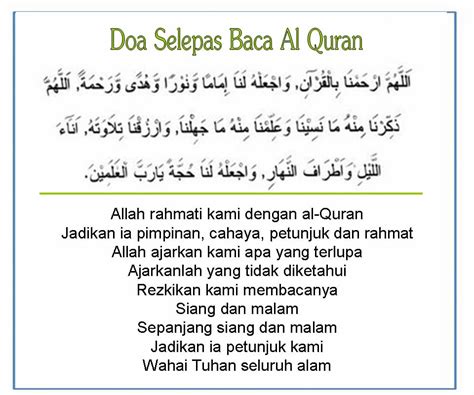 Doa Selepas Baca Al Quran
اَللَّهُمَّ ارْحَمْنَا بِالْقُرْآنِ, وَاجْعَلْهُ لَنَا إِمَامًا وَّنُوْرًا وَّهُدًى وَّرَحْمَةً, اَللَّهُمَّ
ذَكِّرْنَا مِنْهُ مَا نَسِيْنَا وَعَلِّمْنَا مِنْهُ مَا جَهِلْنَا, وَارْزُقْنَا تِلَاوَتَهُ, آنَاءَ
اللَّيْلِ وَأَطْرَافَ النَّهَارِ, وَاجْعَلْهُ لَنَا حُجَّةً يَارَبَّ الْعٰلَمِيْنَ.
Allah rahmati kami dengan al-Quran
Jadikan ia pimpinan, cahaya, petunjuk dan rahmat
Allah ajarkan kami apa yang terlupa
Ajarkanlah yang tidak diketahui
Rezkikan kami membacanya
Siang dan malam
Sepanjang siang dan malam
Jadikan ia petunjuk kami
Wahai Tuhan seluruh alam